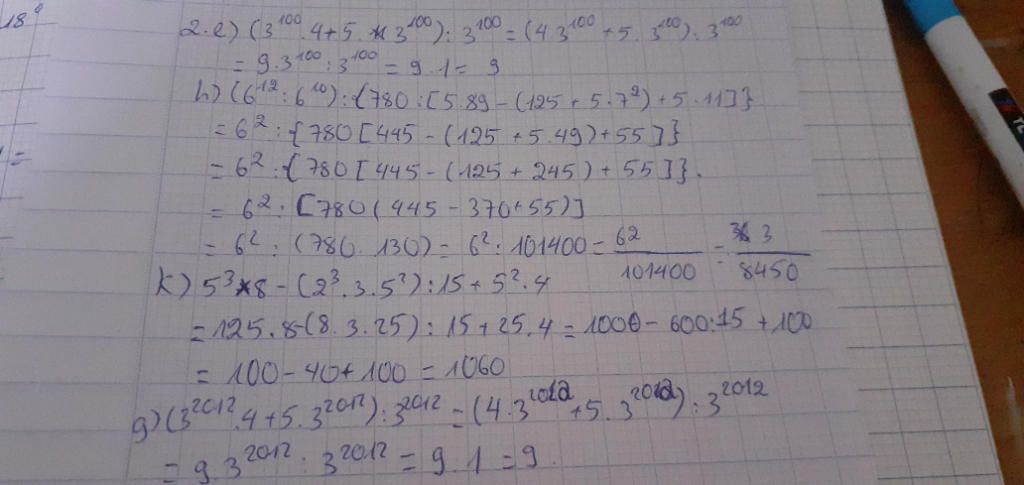 18⁹
2.e) (3¹⁰⁰.4+5.3¹⁰⁰):3¹⁰⁰=(4.3¹⁰⁰+5.3¹⁰⁰):3¹⁰⁰
= 9.3¹⁰⁰:3¹⁰⁰ = 9.1 = 9
h) (6¹²:6¹⁰):{780:[5.89-(125+5.7²)+5.11]}
= 6²:{780[445-(125+5.49)+55]}
= 6²:{780[445-(125+245)+55]}.
= 6²:[780(445-370+55)]
= 6²:(780.130)= 6²:101400= 62/101400 = 3/8450
k) 5³*8-(2³.3.5²):15+5².4
=125.8-(8.3.25):15+25.4=1000-600:15+100
= 100-40+100=1060
g) (3²⁰¹².4+5.3²⁰¹²):3²⁰¹²=(4.3²⁰¹²+5.3²⁰¹²):3²⁰¹²
= 9.3²⁰¹²:3²⁰¹² = 9.1=9.